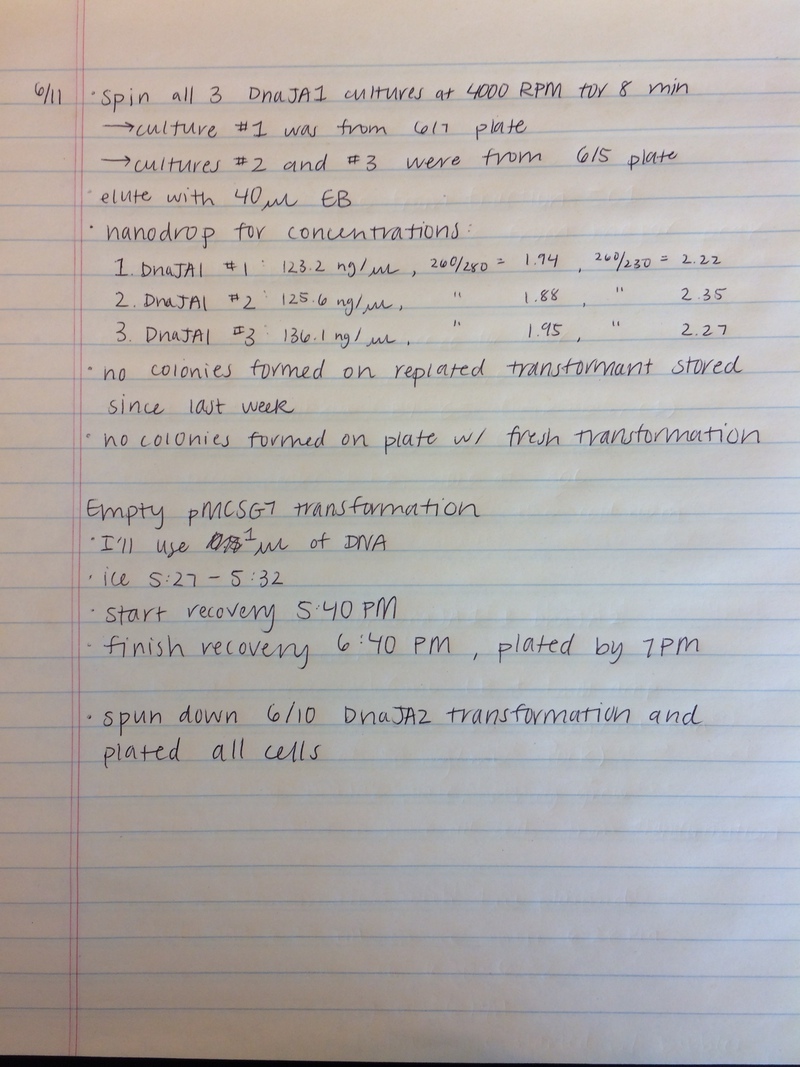 6/11 · Spin all 3 DnaJA1 cultures at 4000 RPM for 8 min
→ culture #1 was from 6/7 plate
→ cultures #2 and #3 were from 6/5 plate
· elute with 40 µl EB
· nanodrop for concentrations:
1. DnaJA1 #1: 123.2 ng/µl, 260/280 = 1.94, 260/230 = 2.22
2. DnaJA1 #2: 125.6 ng/µl, " 1.88, " 2.35
3. DnaJA1 #3: 136.1 ng/µl, " 1.95, " 2.27
· no colonies formed on replated transformant stored
since last week
· no colonies formed on plate w/ fresh transformation
Empty pMCSG7 transformation
· I'll use 1 µl of DNA
· ice 5:27 - 5:32
· start recovery 5:40 PM
· finish recovery 6:40 PM, plated by 7PM
· spun down 6/10 DnaJA2 transformation and
plated all cells